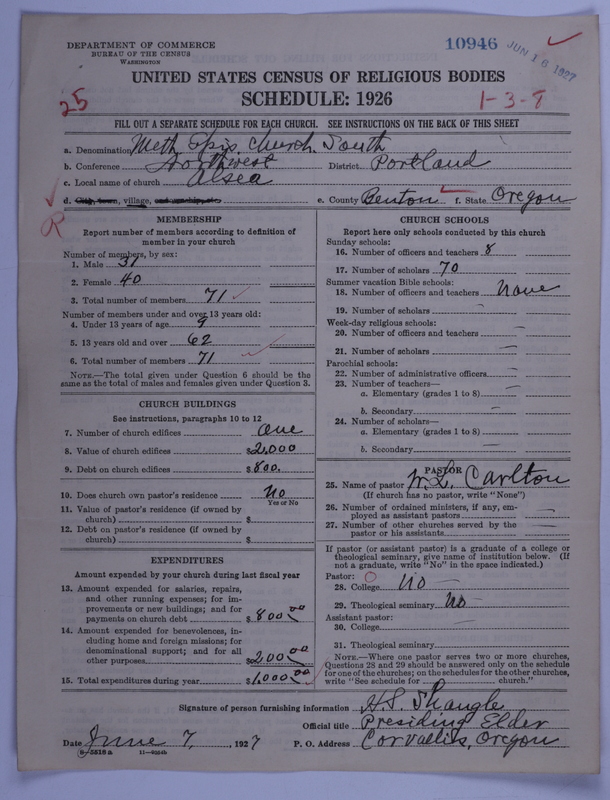 DEPARTMENT OF COMMERCE
BUREAU OF THE CENSUS
WASHINGTON
10946 JUN 16 1927
UNITED STATES CENSUS OF RELIGIOUS BODIES
SCHEDULE: 1926
25
1-3-T
FILL OUT A SEPARATE SCHEDULE FOR EACH CHURCH. SEE INSTRUCTIONS ON THE BACK OF THIS SHEET
a. Denomination Meth. Epis. Church. South
b. Conference Northwest District Portland
c. Local name of church Alsea
d. City, town, village, and township, etc e. County Benton f. State Oregon
R
MEMBERSHIP
Report number of members according to definition of
member in your church
Number of members, by sex:
1. Male 31
2. Female 40
3. Total number of members 71
Number of members under and over 13 years old:
4. Under 13 years of age 9
5. 13 years old and over 62
6. Total number of members 71
NOTE.—The total given under Question 6 should be the
same as the total of males and females given under Question 3.
CHURCH BUILDINGS
See instructions, paragraphs 10 to 12
7. Number of church edifices One
8. Value of church edifices $2,000
9. Debt on church edifices $800.
10. Does church own pastor's residence No
Yes or No
11. Value of pastor's residence (if owned by
church) $
12. Debt on pastor's residence (if owned by
church) $
EXPENDITURES
Amount expended by your church during last fiscal year
13. Amount expended for salaries, repairs,
and other running expenses; for im-
provements or new buildings; and for
payments on church debt $ 800 00
14. Amount expended for benevolences, in-
cluding home and foreign missions; for
denominational support; and for all
other purposes $ 200 00
15. Total expenditures during year $ 1,000 00
CHURCH SCHOOLS
Report here only schools conducted by this church
Sunday schools:
16. Number of officers and teachers 8
17. Number of scholars 70
Summer vacation Bible schools:
18. Number of officers and teachers None
19. Number of scholars —
Week-day religious schools:
20. Number of officers and teachers —
21. Number of scholars —
Parochial schools:
22. Number of administrative officers —
23. Number of teachers—
a. Elementary (grades 1 to 8) —
b. Secondary —
24. Number of scholars—
a. Elementary (grades 1 to 8) —
b. Secondary —
PASTOR
25. Name of pastor W. L. Carlton
(If church has no pastor, write "None")
26. Number of ordained ministers, if any, em-
ployed as assistant pastors —
27. Number of other churches served by the
pastor or his assistants —
If pastor (or assistant pastor) is a graduate of a college or
theological seminary, give name of institution below. (If
not a graduate, write "No" in the space indicated.)
Pastor: O
28. College No —
29. Theological seminary No —
Assistant pastor:
30. College
31. Theological seminary
NOTE.—Where one pastor serves two or more churches,
Questions 28 and 29 should be answered only on the schedule
for one of the churches; on the schedules for the other churches,
write "See schedule for church."
Signature of person furnishing information H. S. Shangle
Official title Presiding Elder
Date June 7, 1927 P. O. Address Corvallis, Oregon
6-5516a 11—9264b